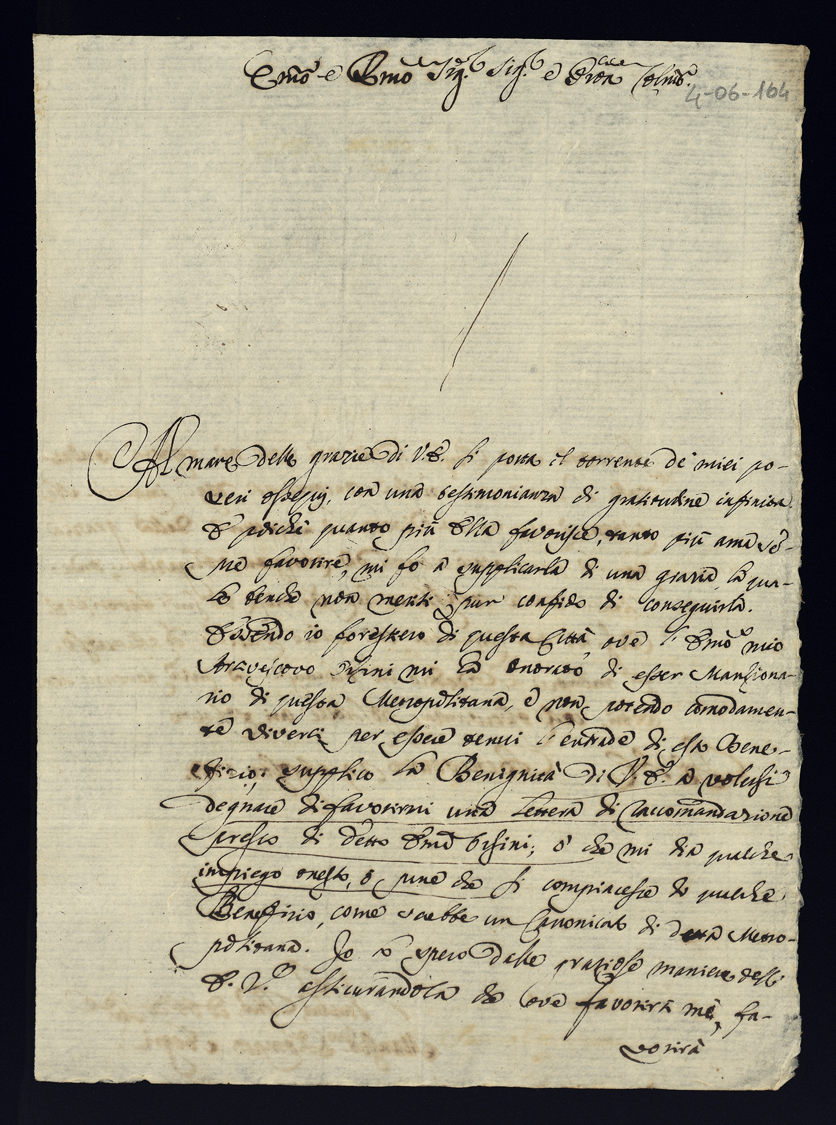 Em̃o e Rm̃o Sig.r Sig.r e Pron Colm̃o
4-06-164
Al mare delle grazie di V.E. si porta il torrente de' miei po-
veri ossequij, con una testimonianza di gratitudine infinita.
E poiche quanto più Ella favorisce, tanto più ama sẽ-
pre favorire, mi fo a supplicarla di una grazia, la qua-
le benche non meriti pur confido di conseguirla.
Essendo io forestiero di questa Città ove l'Em̃o mio
Arcivescovo mi ha onorato di esser Manziona-
rio di questa Metropolitana, e non potendo comodamen-
te viverci per essere tenui l'entrade di esto Bene-
fizio, supplico la Benignità di V.E. a volersi
degnare di favorirmi una lettera di raccomãndazione
presso di detto Em̃o, o' che mi dia qualche
impiego onesto, o pure che si compiacesse di qualche
Benefizio, come sarebbe un Canonicato di detta Metro-
politana. Io lo spero dalle graziose maniere dell'
E.V. assicurandola che ove favorirà me, fa-
vorirà